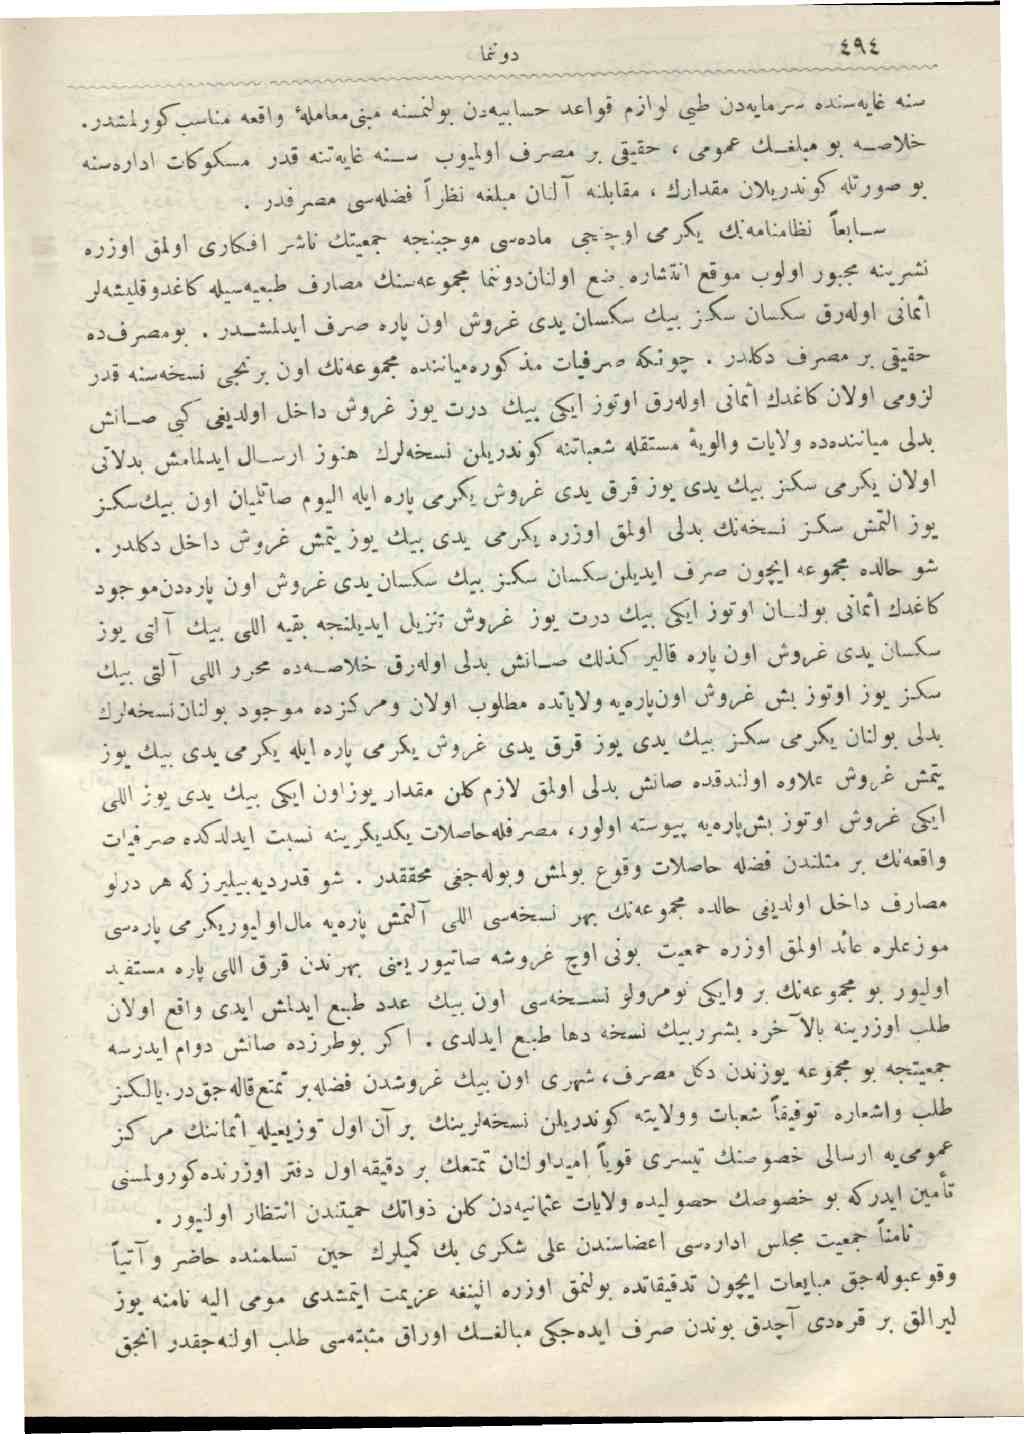 ٤٩٤
دوننما
سنه غایه‌سنده سرمایه‌دن طبی لوازم قواعد حسابیه‌دن بولنمسنه مبنی‌معاملهٔ واقعه مناسب‌کورلمشدر.
خلاصه بو مبلغك عمومی ، حقیقی بر مصرف اولمیوب سنه غایه‌تنه قدر مسکوکات اداره‌سنه
بو صورتله کوندریلان مقدارك ، مقابلنه آلنان مبلغه نظراً فضله‌سی مصرفدر .
سابعاً نظامنامه‌نك یکرمی اوچنجی ماده‌سی موجبنجه جمعیتك ناشر افکاری اولمق اوزره
نشرینه مجبور اولوب موقع انتشاره وضع اولنان‌دوننما مجموعه‌سنك مصارف طبعیه‌سیله کاغدوقلیشه‌لر
اثمانی اوله‌رق سکسان سکز بیك سکسان یدی غروش اون پاره صرف ایدلمشدر . بومصرف‌ده
حقیقی بر مصرف دکلدر . چونکه صرفیات مذکوره‌میاننده مجموعه‌نك اون برنجی نسخه‌سنه قدر
لزومی اولان کاغدك اثمانی اوله‌رق اوتوز ایکی بیك درت یوز غروش داخل اولدیغی کبی صاتش
بدلی میاننده‌ده ولایات والویهٔ مستقله شعباتنه کوندریلن نسخه‌لرك هنوز ارسال ایدلمامش بدلاتی
اولان یکرمی سکز بیك یدی یوز قرق یدی غروش یکرمی پاره ایله الیوم صاتلمیان اون بیك‌سکز
یوز التمش سکز نسخه‌نك بدلی اولمق اوزره یکرمی یدی بیك یوز یتمش غروش داخل دکلدر .
شو حالده مجموعه ایچون صرف ایدیلن‌سکسان سکز بیك سکسان‌یدی غروش اون پاره‌دن‌موجود
کاغدك اثمانی بولنان اوتوز ایکی بیك درت یوز غروش تنزیل ایدیلنجه بقیه اللی بیك آلتی یوز
سکسان یدی غروش اون پاره قالیر کذلك صاتش بدلی اوله‌رق خلاصه‌ده محرر اللی آلتی بیك
سکز یوز اوتوز بش غروش اون‌پاره‌یه ولایاتده مطلوب اولان ومرکزده موجود بولنان‌نسخه‌لرك
بدلی بولنان یکرمی سکز بیك یدی یوز قرق یدی غروش یکرمی پاره ایله یکرمی یدی بیك یوز
یتمش غروش علاوه اولندقده صاتش بدلی اولمق لازم کلن مقدار یوزاون ایکی بیك یدی یوز اللی
ایکی غروش اوتوز بش‌پاره‌یه پیوسته اولور، مصرفله‌حاصلات یکدیکرینه نسبت ایدلدکده صرفیات
واقعه‌نك بر مثلندن فضله حاصلات وقوع بولمش وبوله‌جغی محققدر . شو قدردیه‌بیلیرزکه هر درلو
مصارف داخل اولدیغی حالده مجموعه‌نك بهر نسخه‌سی اللی آلتمش پاره‌یه مال‌اولیوریکرمی پاره‌سی
موزعلره عائد اولمق اوزره جمعیت بونی اوچ غروشه صاتیور یعنی بهرندن قرق اللی پاره مستفید
اولیور بو مجموعه‌نك بر وایکی نومرولو نسخه‌سی اون بیك عدد طبع ایدلمش ایدی واقع اولان
طلب اوزرینه بالآخره بشربیك نسخه دها طبع ایدلدی . اکر بوطرزده صاتش دوام ایدرسه
جمعیتجه بو مجموعه یوزندن دکل مصرف، شهری اون بیك غروشدن فضله‌بر تمتع‌قاله‌جق‌در.یالکز
طلب واشعاره توفیقاً شعبات وولایته کوندریلن نسخه‌لرینك بر آن اول توزیعیله اثماننك مرکز
عمومی‌یه ارسالی خصوصنك تیسری قویاً امیداولنان تمتعك بر دقیقه‌اول دفتر اوزرنده‌کورولمسنی
تأمین ایدرکه بو خصوصك حصولیده ولایات عثمانیه‌دن کلن ذواتك حمیتندن انتظار اولنیور .
ثامناً جمعیت مجلس اداره‌سی اعضاسندن علی شکری بك کمیلرك حین تسلمنده حاضر و آتیاً
وقوعبوله‌جق مبایعات ایچون تدقیقاتده بولنمق اوزره المپنغه عزیمت ایتمشدی مومی الیه نامنه یوز
لیرالق بر قره‌دی آچدق بوندن صرف ایده‌جکی مبالغك اوراق مثبته‌سی طلب اولنه‌جقدر انجق